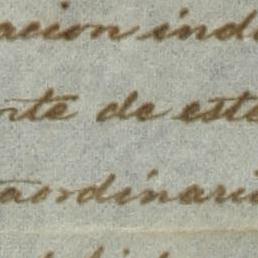 acion inde
rte de este
taordinari